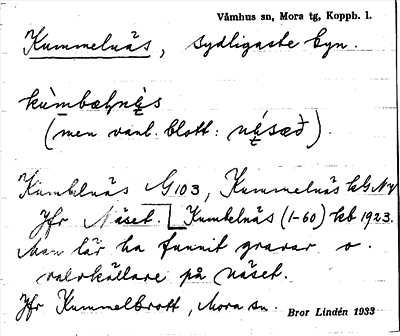 Våmhus sn, Mora tg, Kopph. l.
Kummelnäs, sydligaste byn.
kùmbæḷnę̀s
(men vanl. blott: nę́sæð).
Kumbelnäs G103, Kummelnäs kGNy
Jfr Näset. Kumbelnäs (1-60) kb 1923.
Man lär ha funnit gravar o.
källare på näset.
Jfr Kummelbrott, Mora sn.
Bror Lindén 1933